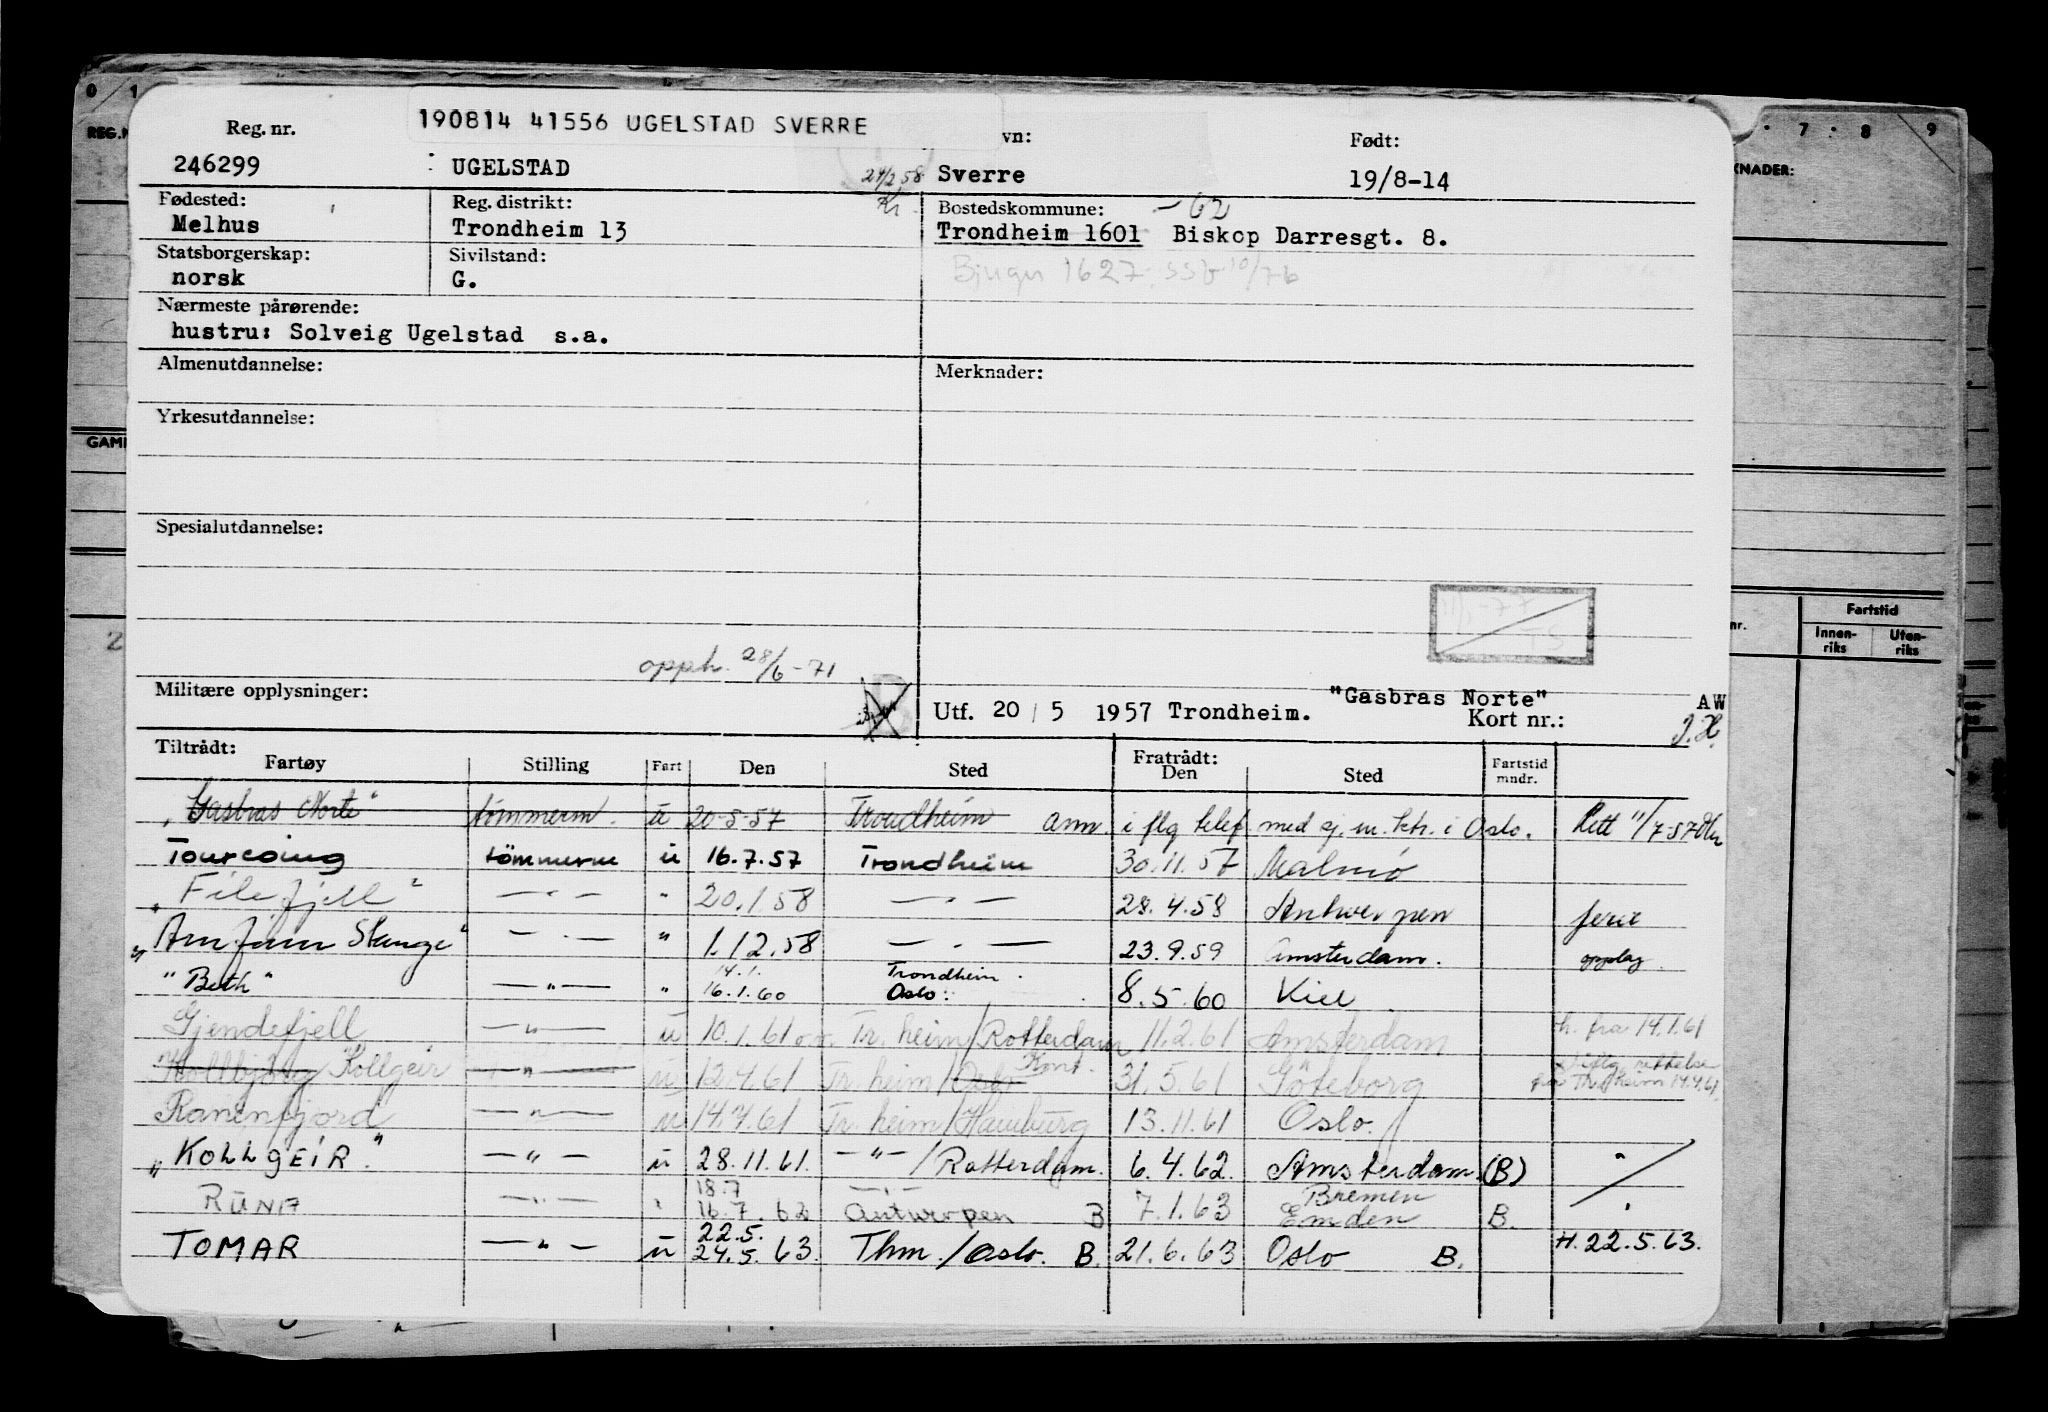 0 1 7 8 9
REG.N
KNADER:
190814 41556 UGELSTAD SVERRE
Reg. nr. vn: Født:
246299 UGELSTAD 24/2 58 Sverre 19/8-14
Fødested: Reg. distrikt: Kr. Bostedskommune: -62
Melhus Trondheim 13 Trondheim 1601 Biskop Darresgt. 8.
Statsborgerskap: Sivilstand:
norsk G. Bjugn 1627. SSB 10/76
Nærmeste pårørende:
hustru: Solveig Ugelstad s.a.
Almenutdannelse: Merknader:
Yrkesutdannelse:
GAM
Spesialutdannelse:
nr. Fartstid
Innenriks Utenriks
2
TS
opph. 28/6-71
Militære opplysninger: Utf. 20 / 5 1957 Trondheim. "Gasbras Norte" Kort nr.: AW
J.H.
Tiltrådt: Fratrådt:
Fartøy Stilling Fart Den Sted Den Sted Fartstid mndr.
"Gasbras Norte" tömmerm. u 20-5-57 Trondheim ann. i flg telef. med sj. m. ktr. i Oslo. Rett 11/7-57
Tourcoing tömmerm u 16.7.57 Trondheim 30.11.57 Malmö
"Filefjell" — " — " 20.1.58 — " — 28.4.58 Antwerpen ferie
"Arnfinn Stange" — " — " 1.12.58 — " — 23.9.59 Amsterdam. opplag.
"Beth" — " — " 14.1. 16.1.60 Trondheim. Oslo. 8.5.60 Kiel
Gjendefjell — " — u 10.1.61 Tr.heim/Rotterdam 11.2.61 Amsterdam h. fra 14.1.61
Kollbjörg Kollgeir — " — u 12.4.61 Tr.heim/Oslo Kont. 31.5.61 Göteborg iflg. rettelse fra Tr.heim 14.4.61
Ranenfjord — " — u 14.7.61 Tr.heim/Hamburg 13.11.61 Oslo.
"KOLLGEIR." — " — u 28.11.61. — " — /Rotterdam. 6.4.62. Amsterdam. (B) "
RUNA — " — " 18.7 16.7.62 — " — Antwerpen B 7.1.63 Bremen Emden B. "
TOMAR — " — u 22.5. 24.5.63. Thm./Oslo. B. 21.6.63 Oslo B. H. 22.5.63.